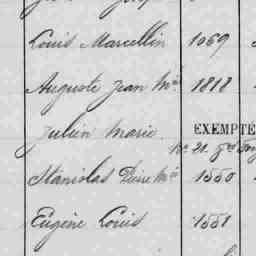 Louis Marcellin 1069
Auguste Jean Mie 1818
Julien Marie EXEMPTÉ
No. 21.
Stanislas Pierre Mie 1550
Eugène Louis 1551